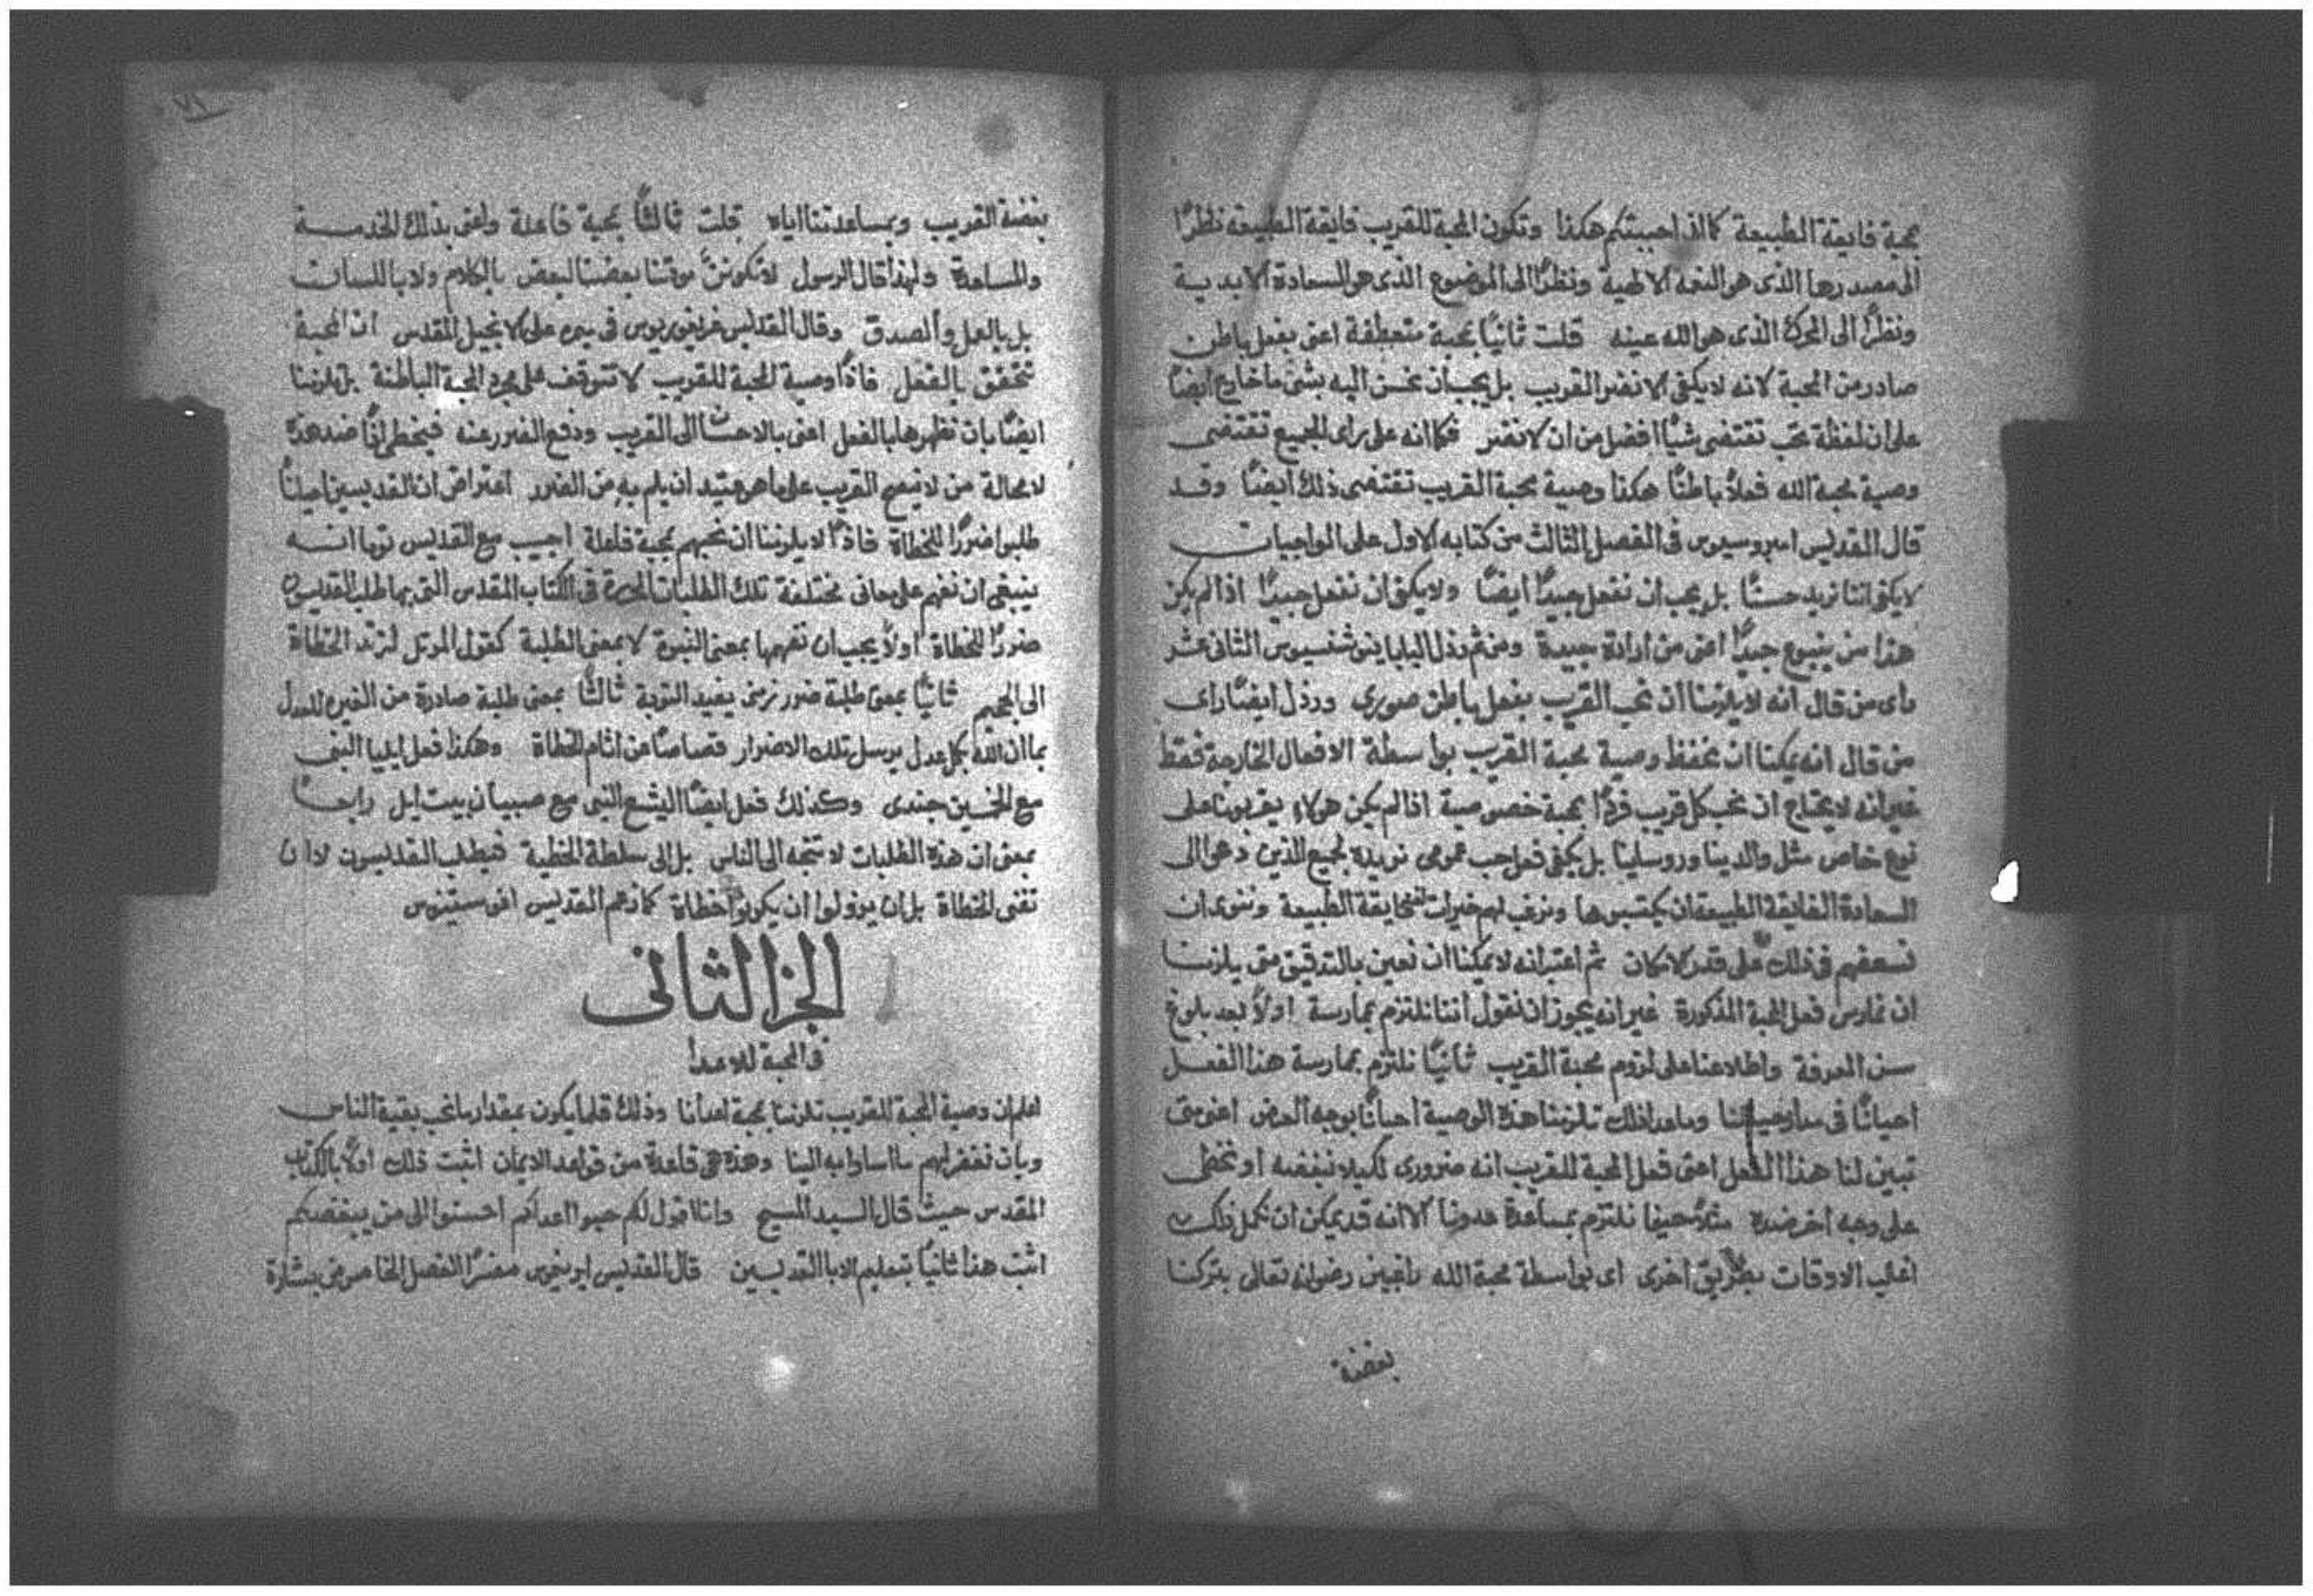 محبة فايقة الطبيعة كالذ احببتكم هكذا وتكون المحبة للقريب فايقة الطبيعة نظرًا
الى مصدرها الذى هو النعمه الالهية ونظرًا الى الموضوع الذى هو السعادة الابدية
ونظرًا الى المحرك الذى هو الله عينه قلت ثانيًا محبة متعطفة اعنى بفعل باطن
صادر من المحبة لانه لا يكفى الا نضر القريب بل يجب ان نحسن اليه بشى ما خارج ايضًا
على ان لفظة تحب تقتضى شيًا افضل من ان لا نضر فكما انه على راى الجميع تقتضى
وصية محبة الله فعلًا باطنًا هكذا وصية محبة القريب تقتضى ذلك ايضًا وقد
قال القديس امبروسيوس فى الفصل الثالث من كتابه الاول على الواجبات
لا يكفى اننا نريد حسنًا بل يجب ان نفعل جيدًا ايضًا ولا يكفى ان نفعل جيدًا اذا لم يكن
هذا من ينبوع جيدًا اعنى من ارادة جيدة ومن ثم رذل البابا ينوشنسيوس الثانى عشر
راى من قال انه لا يلزمنا ان نحب القريب بفعل باطن صورى ورذل ايضًا راى
من قال انه يمكنا ان نحفظ وصية محبة القريب بواسطة الافعال الخارجة فقط
غير انه لا يحتاج ان نحب كل قريب فردًا بمحبة خصوصية اذا لم يكن هولاء يقربونا على
نوع خاص مثل والدينا وروساينا بل يكفى فعل حب عمومى نريد به لجميع الذين دعى الى
السعادة الفايقة الطبيعة ان يكتسبوها ونرغب لهم خيرات الفايقة الطبيعة وننوى ان
نسعفهم فى ذلك على قدر الامكان ثم اعتبر انه لا يمكنا ان نعين بالتدقيق متى يلزمنا
ان نمارس فعل المحبة المذكورة غير انه يجوز ان نقول اننا نلتزم بممارسة اولًا بعد بلوغ
سن المعرفة واطلاعنا على لزوم محبة القريب ثانيًا نلتزم بممارسة هذا الفعل
احيانًا فى مدار حياتنا وما عدا ذلك تلزمنا هذه الوصية احيانًا بوجه العرض اعنى متى
تبين لنا هذا الفعل اعنى فعل المحبة للقريب انه ضرورى لكيلا نبغضه او نخطى
على وجه اخر ضده مثلًا حينما نلتزم بمساعدة عدونا الا انه قد يمكن ان نكمل ذلك فى
اغلب الاوقات بطريق اخرى اى بواسطة محبة الله راغبين رضوانه تعالى بتركنا
بغضة
٧١
بغضة القريب وبمساعدتنا اياه قلت ثالثًا محبة فاعلة واعنى بذلك الخدمة
والمساعدة ولهذا قال الرسول لا تكوننَّ مودتنا بعضنا لبعض بالكلام ولا باللسان
بل بالعمل والصدق وقال القديس غريغوريوس فى على الانجيل المقدس ان المحبة
تتحقق بالفعل فاذًا وصية المحبة للقريب لا تتوقف على مجرد المحبة الباطنة بل يلزمنا
ايضًا بان نظهرها بالفعل اعنى بالاحسان الى القريب ودفع الضرر عنه فيخطى اذًا ضد هذه
لا محالة من لا ينصح القريب على ما هو عتيد ان يلم به من الضرر اعتراض ان القديسين احيانًا
طلبوا ضررًا للخطاة فاذًا لا يلزمنا ان نحبهم بمحبة فاعلة اجيب مع القديس توما انه
ينبغى ان نفهم على معانى مختلفة تلك الطلبات المحررة فى الكتاب المقدس التى بها طلب القديسون
ضررًا للخطاة اولًا يجب ان نفهمها بمعنى النبوة لا بمعنى الطلبة كقول المرتل لترتد الخطاة
الى الجحيم ثانيًا بمعنى طلبة ضرر زمنى يفيد التوبة ثالثًا بمعنى طلبة صادرة من الغيره للعدل
بما ان الله بكل عدل يرسل تلك الاضرار قصاصًا عن اثام الخطاة وهكذا فعل ايليا النبى
مع الخمسين جندى وكذلك فعل ايضًا اليشع النبى مع صبيان بيت ايل رابعًا
بمعنى ان هذه الطلبات لا تتجه الى الناس بل الى سلطة الخطية فيطلب القديسون لا ان
تفنى الخطاة بل ان يزولوا ان يكونوا خطاة كما زعم القديس اغوستينوس
الجزا الثانى
فى المحبة للاعدا
اعلم ان وصية المحبة للقريب تلزمنا بمحبة اعدآنا وذلك قلما يكون بمقدار ما نحب بقية الناس
وبان نغفر لهم ما اساوا به الينا وهذه هى قاعدة من قواعد الايمان اثبت ذلك اولًا بالكتاب
المقدس حيث قال السيد المسيح وانا اقول لكم حبوا اعدآكم احسنوا الى من يبغضكم
اثبت هذا ثانيًا بتعليم الابا القديسين قال القديس ايرنيموس مفسرًا الفصل الخامس من بشارة